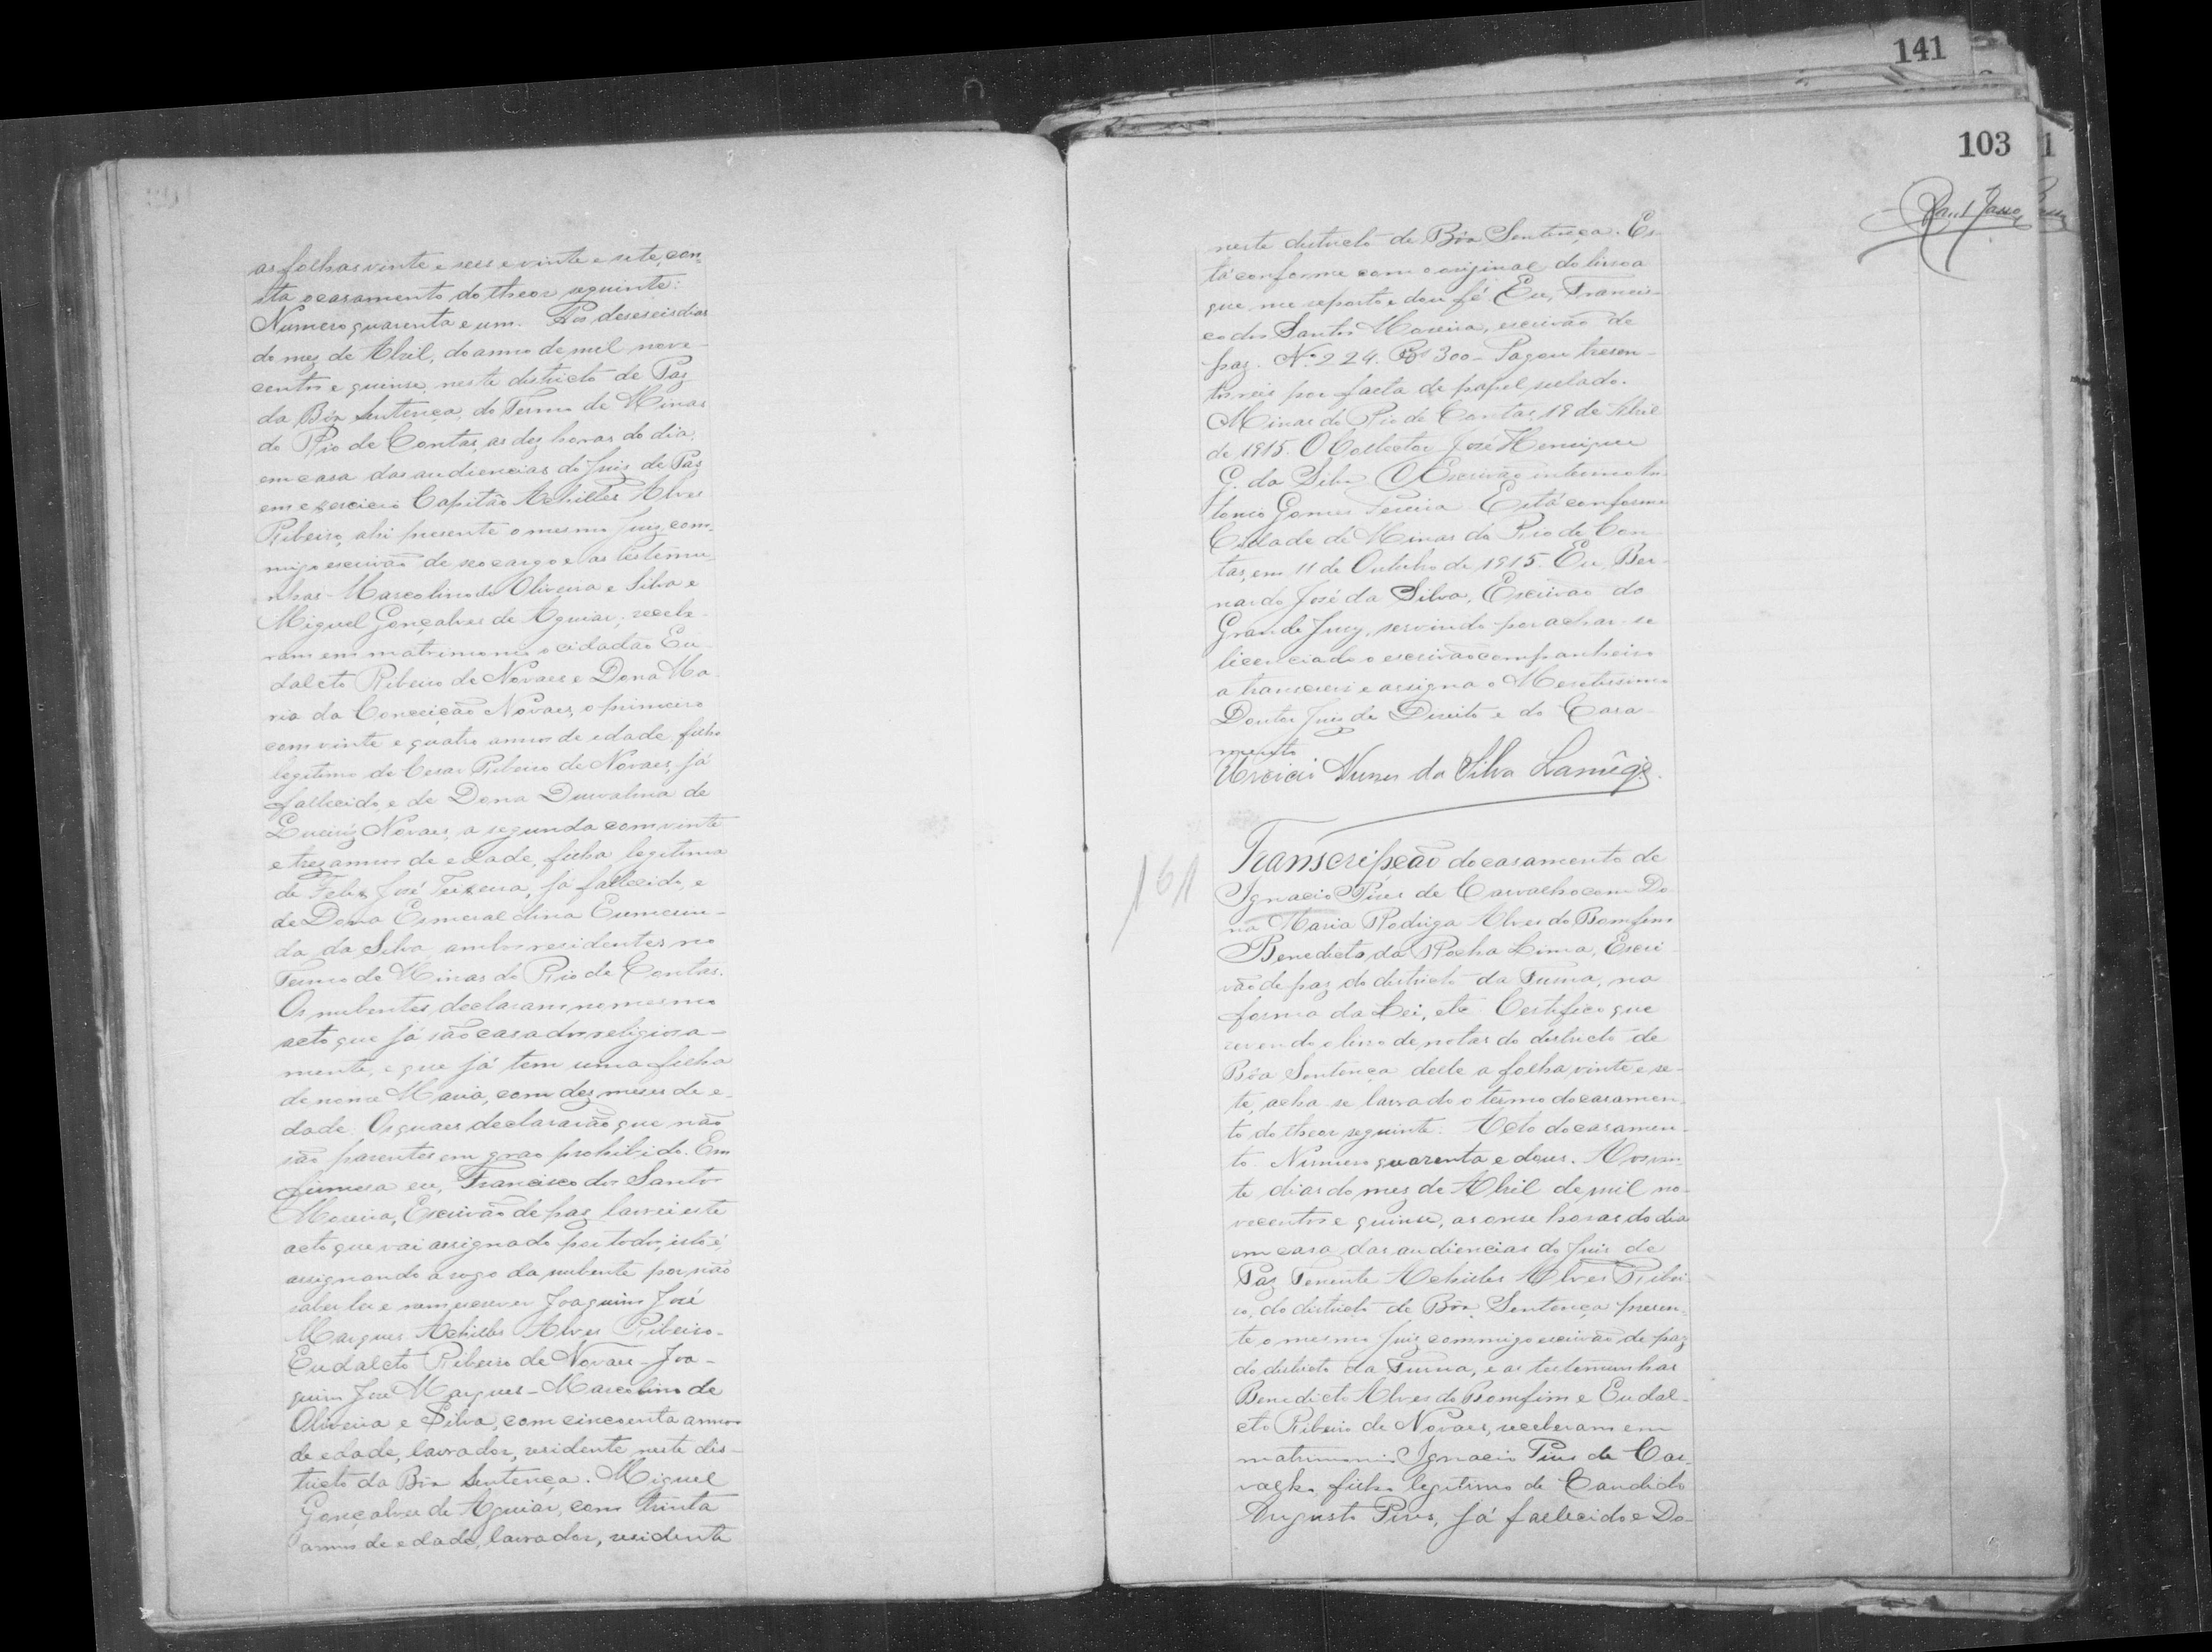 as folhas vinte e seis e vinte e sete, con-
sta o casamento do theor seguinte:
Numero quarenta e um. Aos deseseis dias
do mez de Abril, do anno de mil nove-
centos e quinse, neste districto de Paz
da Bôa Sentença, do Termo de Minas
do Rio de Contas, as dez horas do dia,
em casa das audiencias do Juiz de Paz
em exercicio Capitão Achilles Alves
Ribeiro, ahi presente o mesmo Juiz, com-
migo escrivão de seo cargo e as testemu-
nhas Marcolino de Oliveira e Silva e
Miguel Gonçalves de Aguiar; recebe-
ram em matrimonio o cidadão Eu-
dalcto Ribeiro de Novaes e Dona Ma-
ria da Conceição Novaes, o primeiro
com vinte e quatro annos de edade, filho
legitimo de Cesar Ribeiro de Novaes, já
fallecido, e de Dona Durvalina de
Queiróz Novaes, a segunda com vinte
e trez annos de edade, filha legitima
de Felix José Teixeira, já fallecido, e
de Dona Esmeraldina Eumerin-
da da Silva, ambos residentes no
Termo de Minas do Rio de Contas.
Os nubentes declaram no mesmo
acto que já são casados religiosa-
mente, e que já tem uma filha
de nome Maria, com dez meses de e-
dade. Os quaes declararão que não
são parentes em grao prohibido. Em
firmesa eu, Francisco dos Santos
Moreira, Escrivão de paz lavrei este
acto que vai assignado por todos, isto é,
assignando a rogo da nubente por não
saber ler e nem escrever Joaquim José
Marques Achilles Alves Ribeiro-
Eudalcto Ribeiro de Novaes - Joa-
quim José Marques - Marcolino de
Oliveira e Silva, com cincoenta annos
de edade, lavrador, residente neste dis-
tricto da Bôa Sentença. Miguel
Gonçalves de Aguiar, com trinta
annos de edade, lavrador, residente
141
103
neste districto de Bôa Sentença. Es-
tá conforme com o original do livro a
que me reporto e dou fé. Eu, Francis-
co dos Santos Moreira, escrivão de
paz. Nº 224. Rs 300 - Pagou tresen-
tos reis por falta de papel sellado.
Minas do Rio de Contas, 19 de Abril
de 1915. O Collector José Henrique
G. da Silva O Escrivão interino An-
tonio Gomes Pereira. Está conforme
Cidade de Minas do Rio de Con-
tas, em 11 de Outubro de 1915. Eu, Ber-
nardo José da Silva, Escrivão do
Grande Jury, servindo por achar-se
licenciado o escrivão companheiro
a transcrevi e assigna o Meretissimo
Doutor Juiz de Direito e do Casa-
mento
Nunes da Silva
161
Transcripção do casamento de
Ignacio Pires de Carvalho com Do-
na Maria Rodriga Alves do Bomfim
Benedicto da Rocha Lima, Escri-
vão de paz do districto da Furna, na
forma da Lei, etc. Certifico que
revendo o livro de notas do districto de
Bôa Sentença delle a folha vinte e se-
te, acha-se lavrado o termo do casamen-
to do theor seguinte. Acto do casamen-
to. Numero quarenta e dous. Aos vin-
te dias do mez de Abril de mil no-
vecentos e quinse, as onse horas do dia
em casa das audiencias do Juiz de
Paz Tenente Achilles Alves Ribei-
ro, do districto de Bôa Sentença presen-
te o mesmo Juiz commigo escrivão de paz
do districto da Furna, e as testemunhas
Benedicto Alves do Bomfim e Eudal-
cto Ribeiro de Novaes, receberam em
matrimonio Ignacio Pires de Car-
valho, filho legitimo de Candido
Augusto Pires, já fallecido e Do-